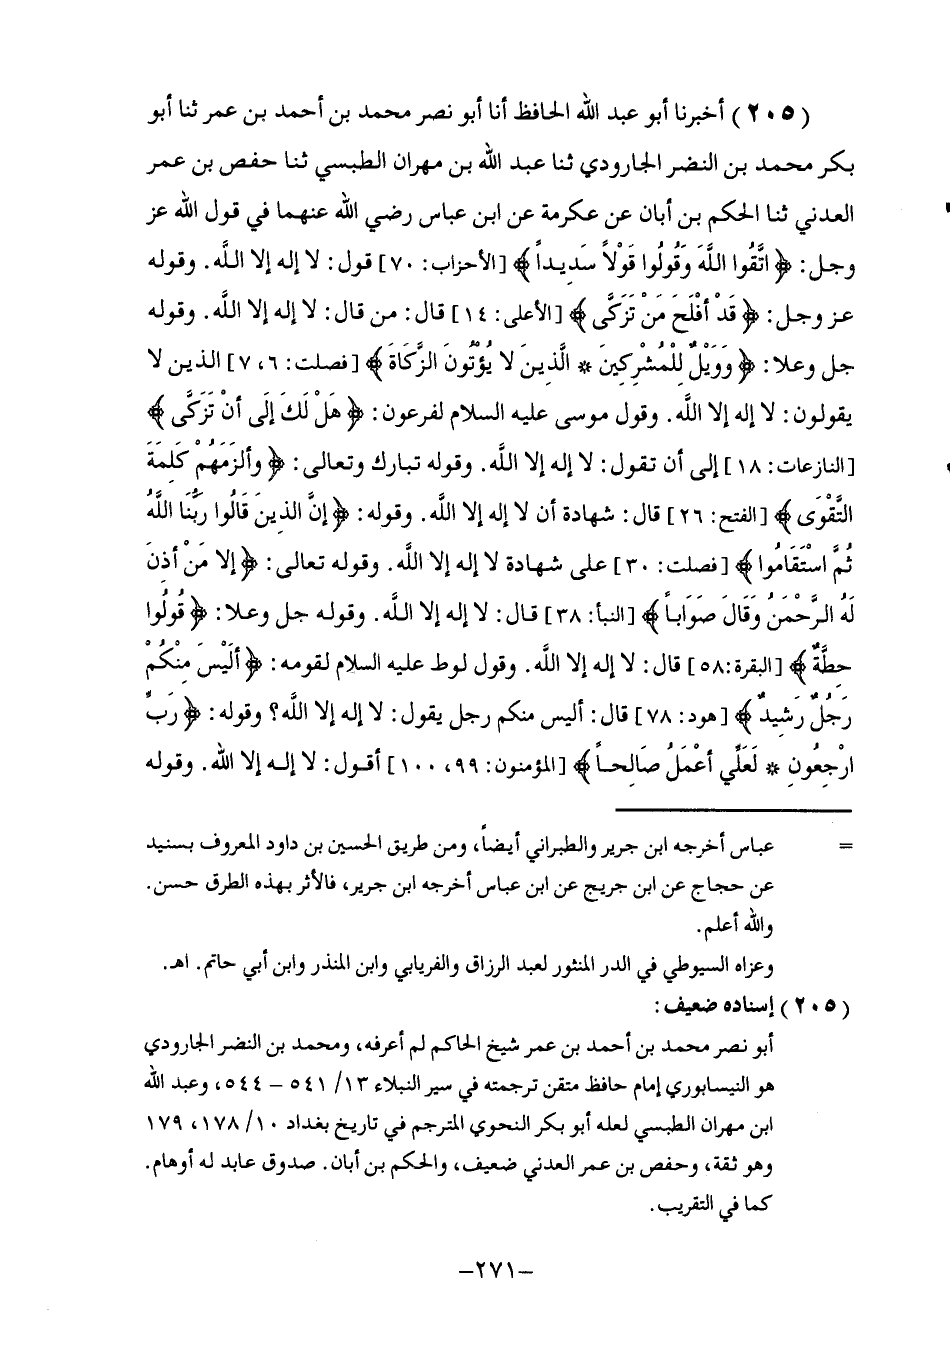 (٢٠٥) أخبرنا أبو عبد الله الحافظ أنا أبو نصر محمد بن أحمد بن عمر ثنا أبو
بكر محمد بن النضر الجارودي ثنا عبد الله بن مهران الطبسي ثنا حفص بن عمر
العدني ثنا الحكم بن أبان عن عكرمة عن ابن عباس رضي الله عنهما في قول الله عز
وجل: ﴿ اتَّقُوا اللَّهَ وَقُولُوا قَوْلاً سَدِيداً ﴾ [الأحزاب: ٧٠] قول: لا إله إلا اللَّه. وقوله
عز وجل: ﴿ قَدْ أفْلَحَ مَنْ تَزَكَّى ﴾ [الأعلى: ١٤] قال: من قال: لا إله إلا اللَّه. وقوله
جل وعلا: ﴿ وَوَيْلٌ لِلْمُشْرِكِينَ * الَّذِينَ لا يُؤْتُونَ الزَّكَاةَ ﴾ [فصلت: ٦، ٧] الذين لا
يقولون: لا إله إلا اللَّه. وقول موسى عليه السلام لفرعون: ﴿ هَلْ لَكَ إلَى أنْ تَزَكَّى ﴾
[النازعات: ١٨] إلى أن تقول: لا إله إلا اللَّه. وقوله تبارك وتعالى: ﴿ وألزَمَهُمْ كَلِمَةَ
التَّقْوَى ﴾ [الفتح: ٢٦] قال: شهادة أن لا إله إلا اللَّه. وقوله: ﴿ إنَّ الذينَ قَالُوا رَبُّنَا اللَّهُ
ثُمَّ اسْتَقَامُوا ﴾ [فصلت: ٣٠] على شهادة لا إله إلا اللَّه. وقوله تعالى: ﴿ إلا مَنْ أذِنَ
لَهُ الرَّحْمَنُ وَقَالَ صَوَاباً ﴾ [النبأ: ٣٨] قال: لا إله إلا اللَّه. وقوله جل وعلا: ﴿ قُولُوا
حِطَّةٌ ﴾ [البقرة:٥٨] قال: لا إله إلا اللَّه. وقول لوط عليه السلام لقومه: ﴿ ألَيْسَ مِنْكُمْ
رَجُلٌ رَشِيدٌ ﴾ [هود: ٧٨] قال: أليس منكم رجل يقول: لا إله إلا اللَّه؟ وقوله: ﴿ رَبِّ
ارْجِعُونِ * لَعَلِّي أعْمَلُ صَالِحاً ﴾ [المؤمنون: ٩٩، ١٠٠] أقول: لا إله إلا الله. وقوله
= عباس أخرجه ابن جرير والطبراني أيضاً، ومن طريق الحسين بن داود المعروف بسنيد
عن حجاج عن ابن جريج عن ابن عباس أخرجه ابن جرير، فالأثر بهذه الطرق حسن.
والله أعلم.
وعزاه السيوطي في الدر المنثور لعبد الرزاق والفريابي وابن المنذر وابن أبي حاتم. اهـ.
(٢٠٥) إسناده ضعيف:
أبو نصر محمد بن أحمد بن عمر شيخ الحاكم لم أعرفه، ومحمد بن النضر الجارودي
هو النيسابوري إمام حافظ متقن ترجمته في سير النبلاء ١٣/ ٥٤١ – ٥٤٤، وعبد الله
ابن مهران الطبسي لعله أبو بكر النحوي المترجم في تاريخ بغداد ١٠/ ١٧٨، ١٧٩
وهو ثقة، وحفص بن عمر العدني ضعيف، والحكم بن أبان. صدوق عابد له أوهام.
كما في التقريب.
–٢٧١–